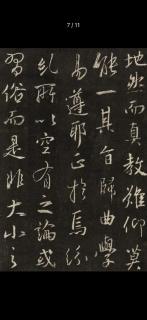 7/11
地然而真教難仰莫
能一其旨歸曲學
易遵耶正於焉紛
糺所以空有之論或
習俗而是非大小之